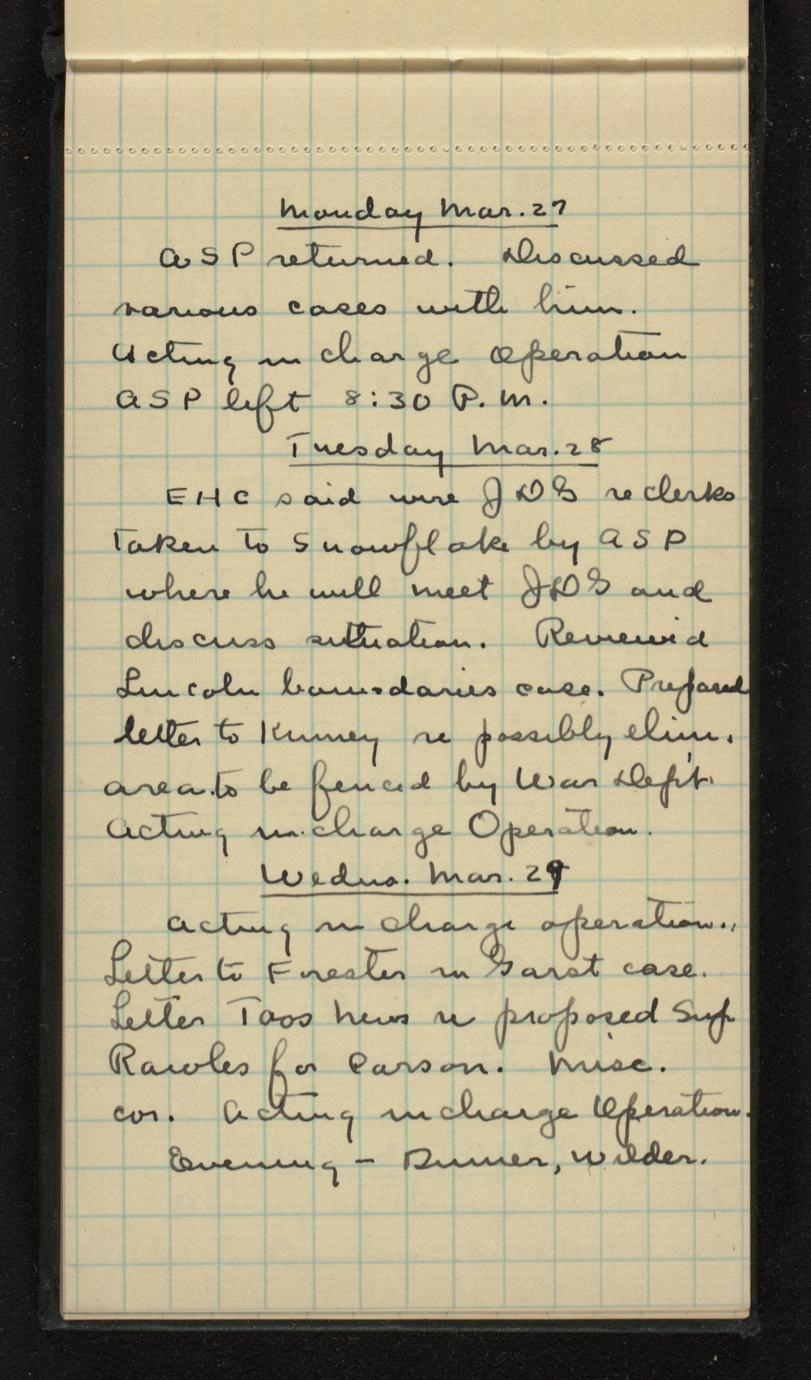 Monday Mar. 27
ASP returned. Discussed
various cases with him.
Acting in charge Operation
ASP left 8:30 P.M.
Tuesday Mar. 28
EHC said wire JDG re clerks
Taken to Snowflake by ASP
where he will meet JDG and
discuss situation. Reviewed
Lincoln boundaries case. Prepared
letter to Kinney re possibly elim.
area to be fenced by War Dep't.
Acting in charge Operation.
Wednes. Mar. 29
Acting in charge operation.
Letter to Forester in Garst case.
Letter Taos News re proposed Sup
Rawles for Carson. Misc.
cor. Acting in charge Operation.
Evening - Dinner, Wilder.